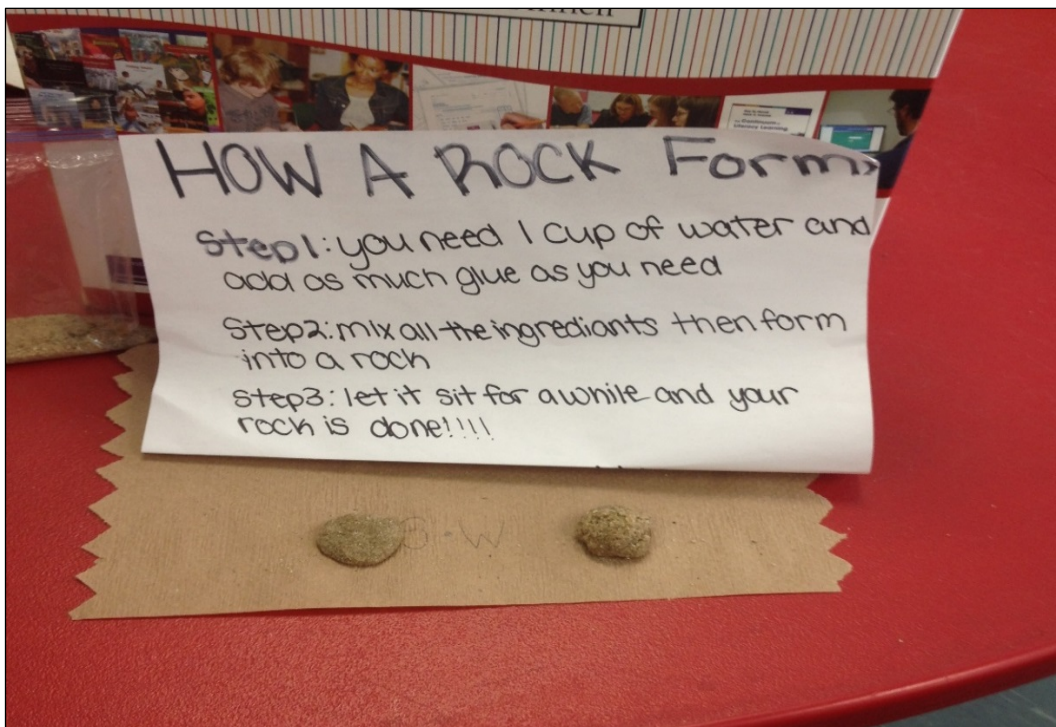 HOW A ROCK Forms
Step1: you need 1 cup of water and
add as much glue as you need
Step2: mix all the ingrediants then form
into a rock
Step3: let it sit for awhile and your
rock is done!!!!
G-W